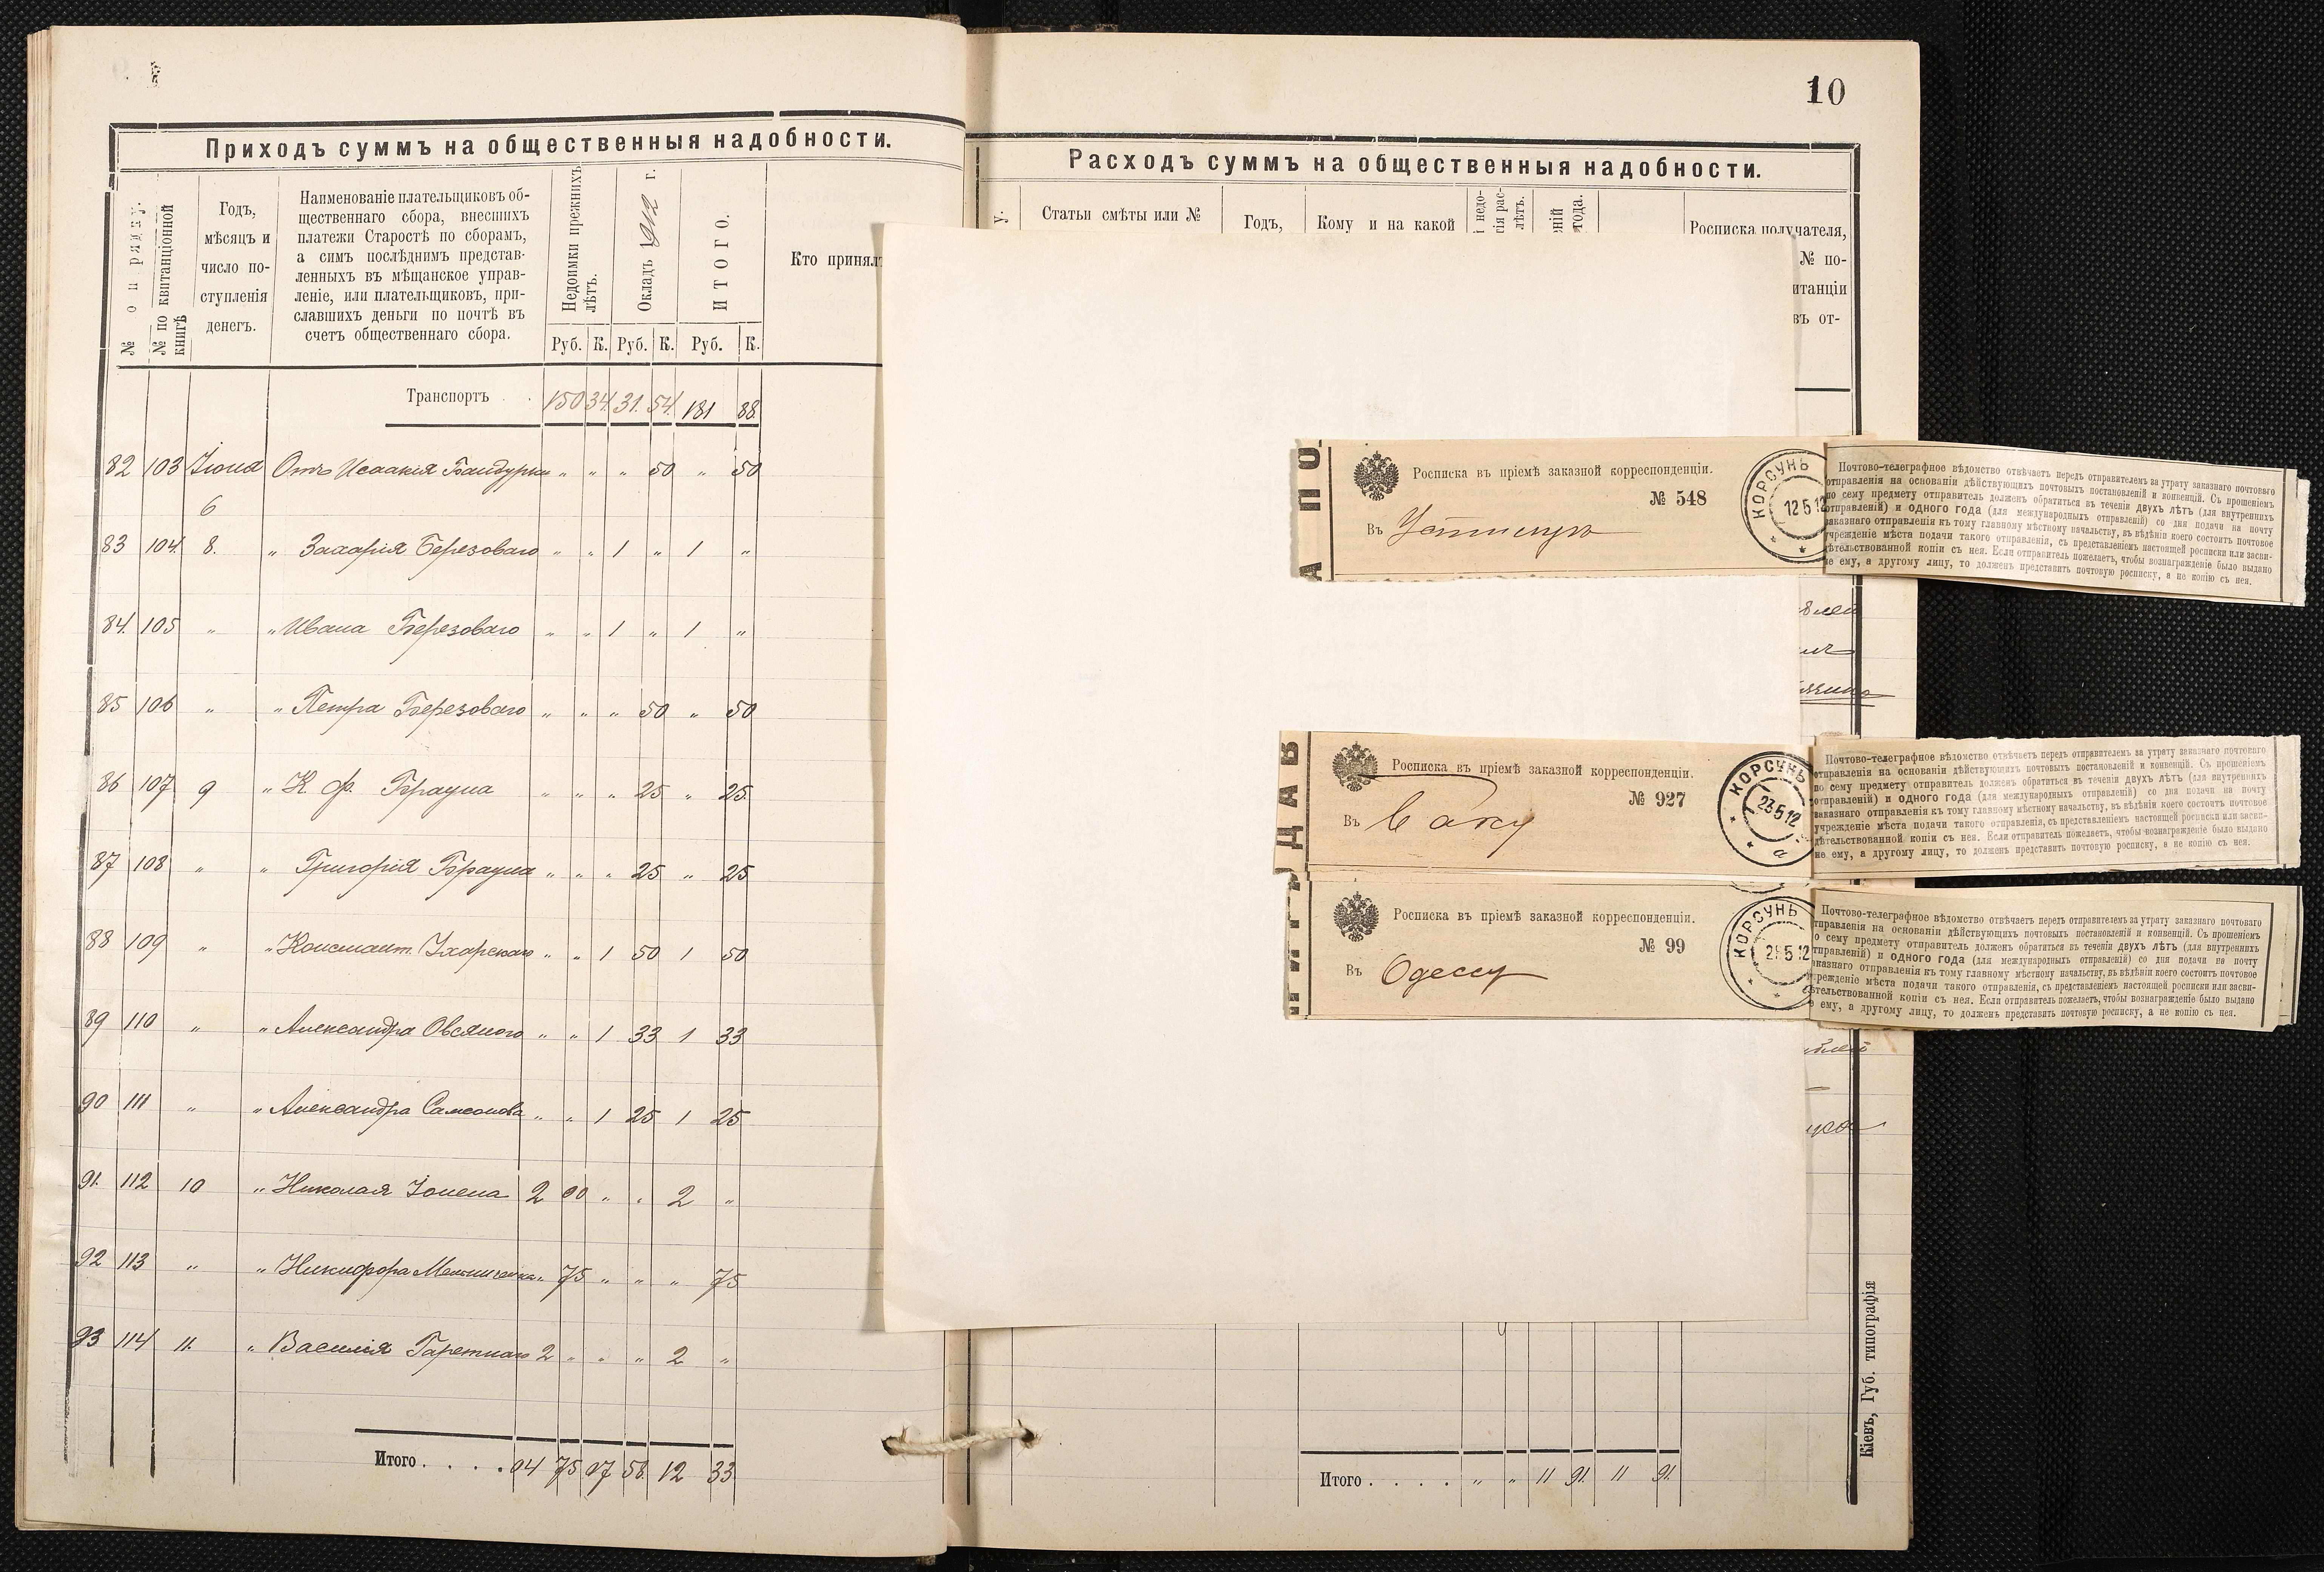 Приходъ суммъ на общественныя надобности.
№ по ряду.
№ по квитанціонной книгѣ
Годъ,
мѣсяцъ и
число по-
ступленія
денегъ.
Наименованіе плательщиковъ об-
щественнаго сбора, внесшихъ
платежи Старостѣ по сборамъ,
а симъ послѣднимъ представ-
ленныхъ въ мѣщанское управ-
леніе, или плательщиковъ, при-
славшихъ деньги по почтѣ въ
счетъ общественнаго сбора.
Недоимки прежнихъ лѣтъ.
Окладъ 1912 г.
ИТОГО.
Кто принялъ
Руб. К. Руб. К. Руб. К.
Транспортъ . . 150 34. 31. 54. 181 88.
82 103 Іюня Отъ Исаакія Бандурки " " " 50 " 50
6
83 104. 8. " Захарія Березоваго " " 1 " 1 "
84. 105 " " Ивана Березоваго " " 1 " 1 "
85 106 " " Петра Березоваго " " " 50 " 50
86 107 9 " К. Ф. Брауна " " " 25 " 25.
87 108 " " Григорія Брауна " " " 25 " 25
88 109 " " Констант. " " 1 50 1 50
89 110 " " Александра Овсяного " " 1 33 1 33
90 111 " " Александра Самсонова " " 1 25 1 25
91. 112 10 " Николая 2 00 " " 2 "
92 113 " " Никифора " 75 " " " 75
93 114 11. " Василія 2 " " " 2 "
Итого . . . . 04 75 07 58. 12 33
10
Расходъ суммъ на общественныя надобности.
у.
Статьи смѣты или №
Годъ,
Кому и на какой
недо-
ія рас-
лѣтъ.
ній
года.
Росписка получателя,
№ по-
итанціи
въ от-
А ПО
Росписка въ пріемѣ заказной корреспонденціи.
№ 548
Въ
КОРСУНЬ
12 5 12
Почтово-телеграфное вѣдомство отвѣчаетъ передъ отправителемъ за утрату заказного почтоваго
отправленія на основаніи дѣйствующихъ почтовыхъ постановленій и конвенцій. Съ прошеніемъ
по сему предмету отправитель долженъ обратиться въ теченіи двухъ лѣтъ (для внутреннихъ
отправленій) и одного года (для международныхъ отправленій) со дня подачи на почту
заказнаго отправленія къ тому главному мѣстному начальству, въ вѣдѣніи коего состоитъ почтовое
учрежденіе мѣста подачи такого отправленія, съ представленіемъ настоящей росписки или засви-
дѣтельствованной копіи съ нея. Если отправитель пожелаетъ, чтобы вознагражденіе было выдано
не ему, а другому лицу, то долженъ представить почтовую росписку, а не копію съ нея.
ДАВ
Росписка въ пріемѣ заказной корреспонденціи.
№ 927
Въ Баку
КОРСУНЬ
23 5 12
а
Почтово-телеграфное вѣдомство отвѣчаетъ передъ отправителемъ за утрату заказного почтоваго
отправленія на основаніи дѣйствующихъ почтовыхъ постановленій и конвенцій. Съ прошеніемъ
по сему предмету отправитель долженъ обратиться въ теченіи двухъ лѣтъ (для внутреннихъ
отправленій) и одного года (для международныхъ отправленій) со дня подачи на почту
заказнаго отправленія къ тому главному мѣстному начальству, въ вѣдѣніи коего состоитъ почтовое
учрежденіе мѣста подачи такого отправленія, съ представленіемъ настоящей росписки или засви-
дѣтельствованной копіи съ нея. Если отправитель пожелаетъ, чтобы вознагражденіе было выдано
не ему, а другому лицу, то долженъ представить почтовую росписку, а не копію съ нея.
Росписка въ пріемѣ заказной корреспонденціи.
№ 99
Въ Одессу
КОРСУНЬ
5 12
Почтово-телеграфное вѣдомство отвѣчаетъ передъ отправителемъ за утрату заказного почтоваго
тправленія на основаніи дѣйствующихъ почтовыхъ постановленій и конвенцій. Съ прошеніемъ
о сему предмету отправитель долженъ обратиться въ теченіи двухъ лѣтъ (для внутреннихъ
тправленій) и одного года (для международныхъ отправленій) со дня подачи на почту
аказнаго отправленія къ тому главному мѣстному начальству, въ вѣдѣніи коего состоитъ почтовое
чрежденіе мѣста подачи такого отправленія, съ представленіемъ настоящей росписки или засви-
ѣтельствованной копіи съ нея. Если отправитель пожелаетъ, чтобы вознагражденіе было выдано
е ему, а другому лицу, то долженъ представить почтовую росписку, а не копію съ нея.
Итого . . . . " " 11 91. 11 91.
Кіевъ, Губ. типографія